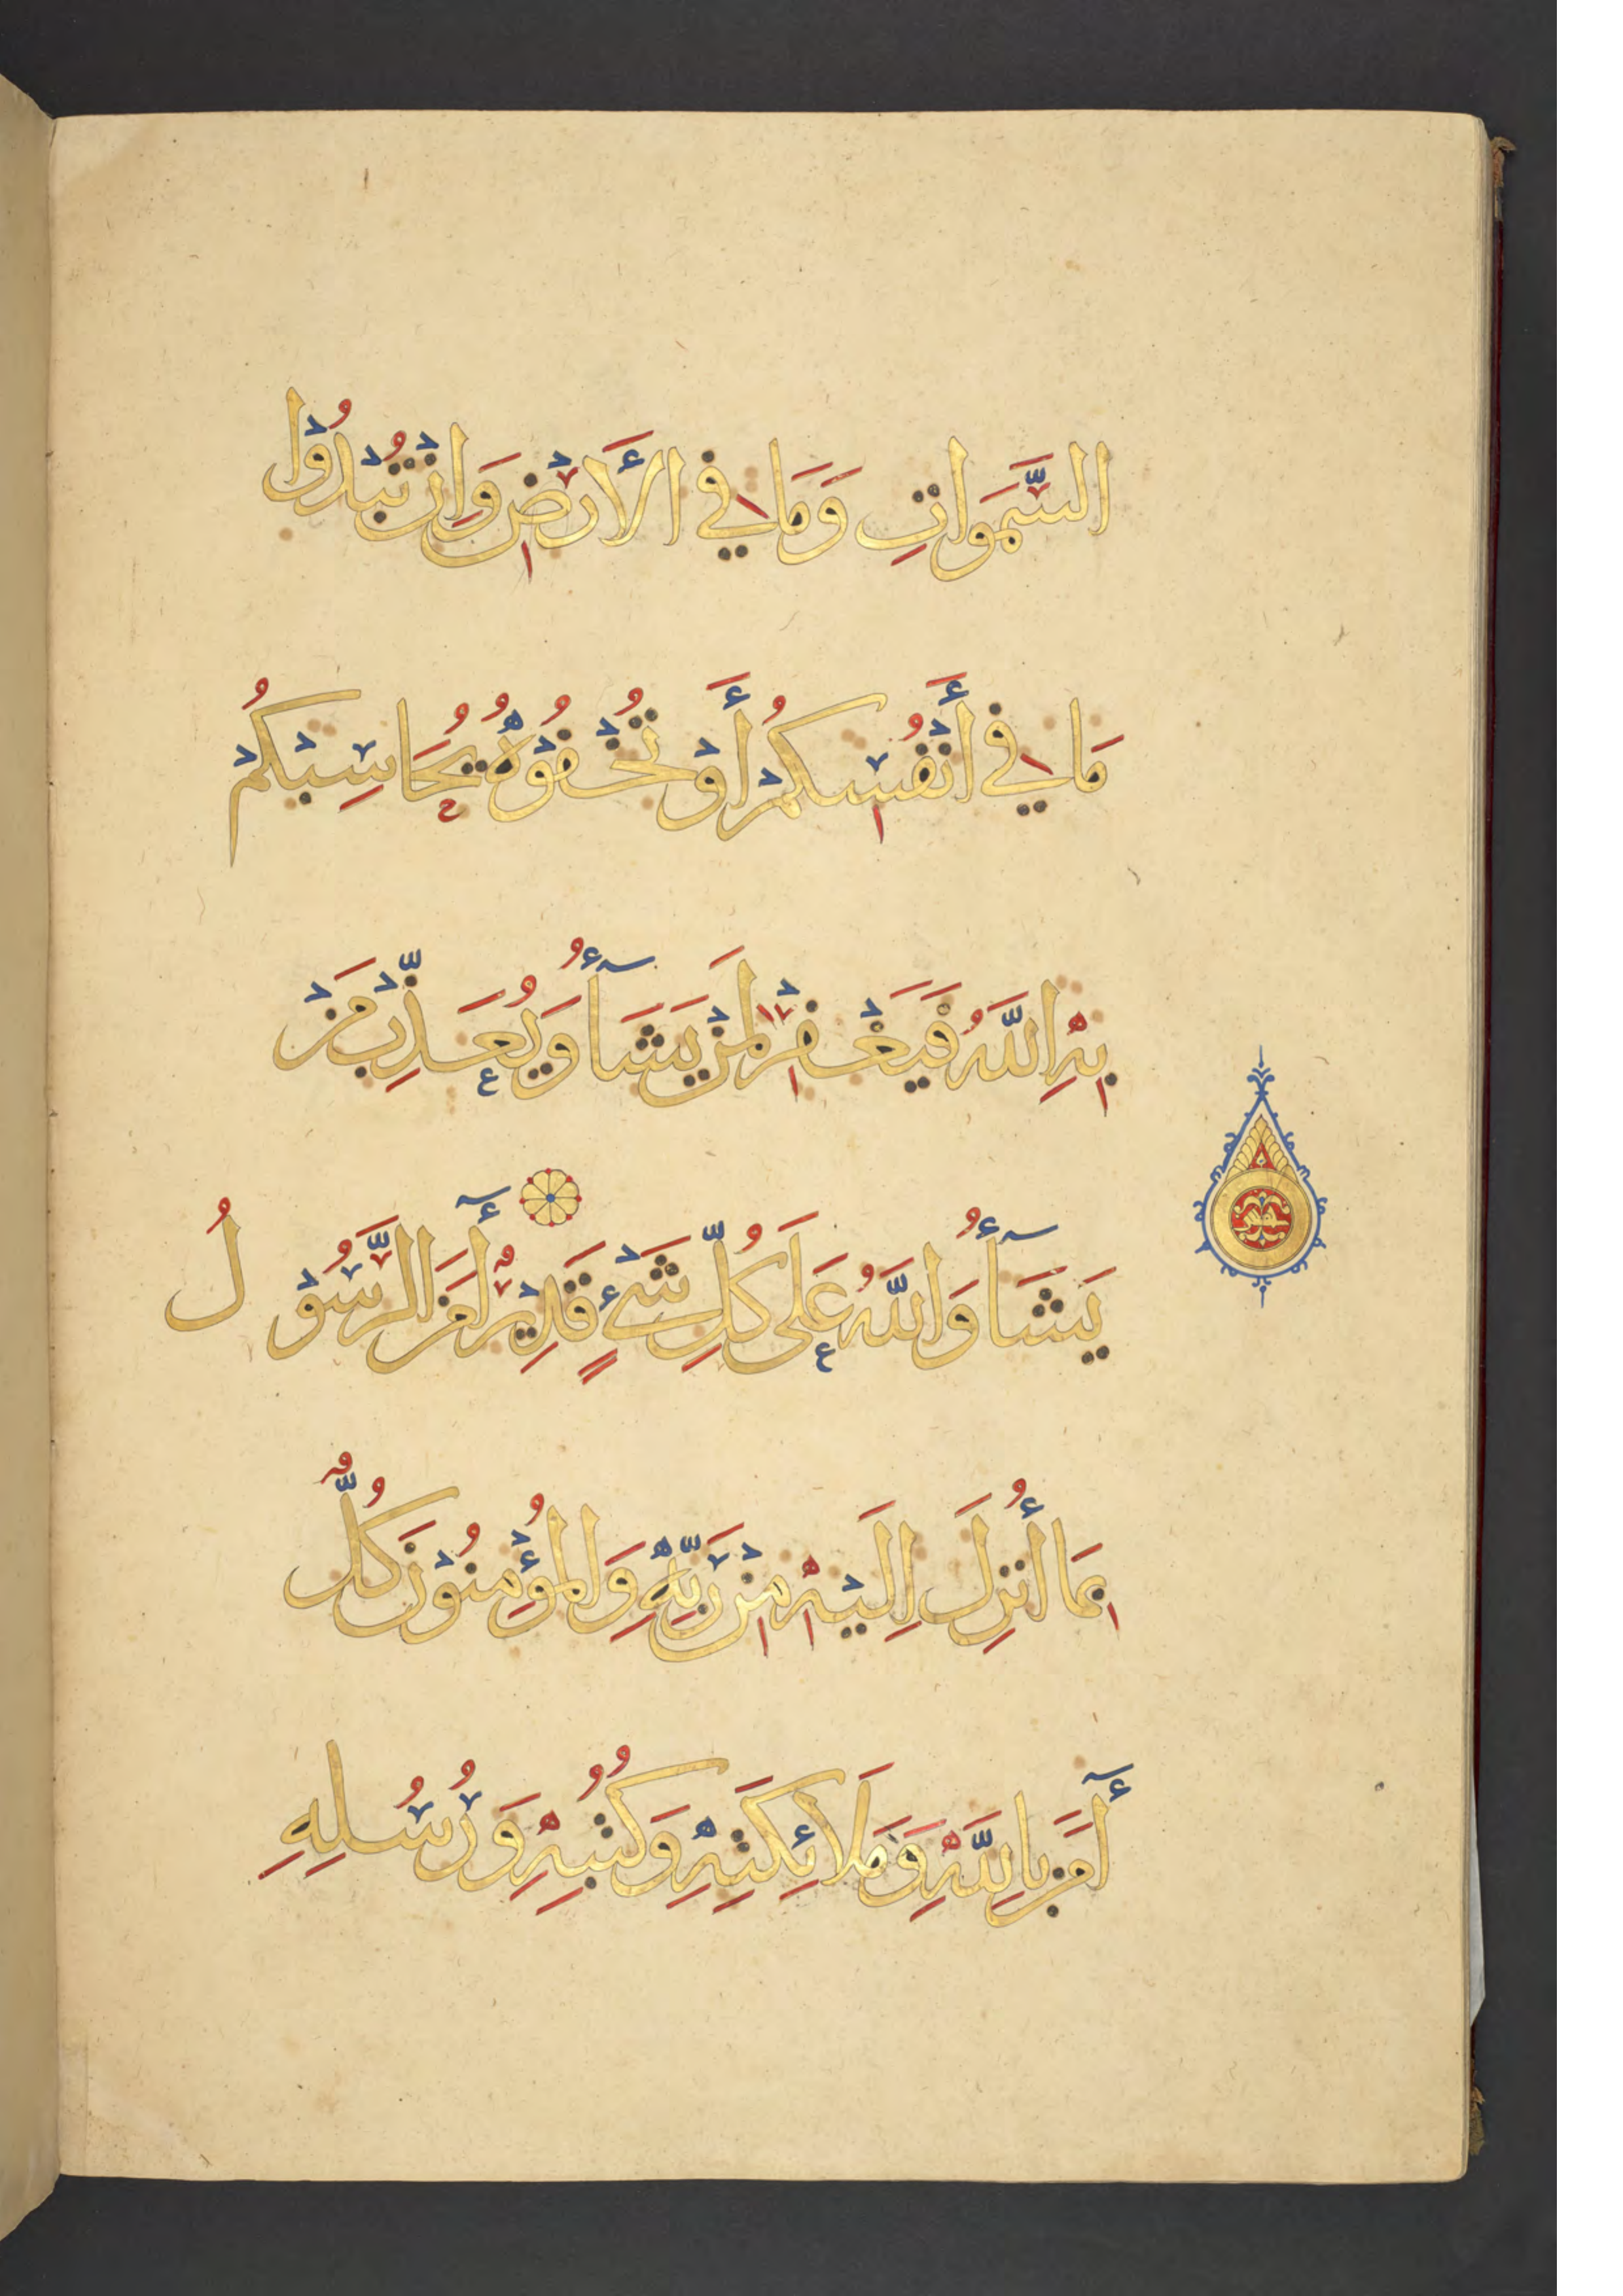 السَّمَوَاتِ وَمَا فِي الأَرْضِ وَاِنْ تُبْدُوْا
مَا فِي أَنْفُسِكُمْ أَوْ تُخْفُوْهُ يُحَاسِبْكُمْ
بِهِ اللَّهُ فَيَغْفِرْ لِمَنْ يَشَآءُ وَيُعَذِّبْ مَنْ
يَشَآءُ وَاللَّهُ عَلَى كُلِّ شَيْءٍ قَدِيْرٌ أٓمَنَ الرَّسُوْلُ
بِمَا أُنْزِلَ اِلَيْهِ مِنْ رَبِّهِ وَالْمُؤْمِنُوْنَ كُلٌّ
أٓمَنَ بِاللَّهِ وَمَلَائِكَتِهِ وَكُتُبِهِ وَرُسُلِهِ